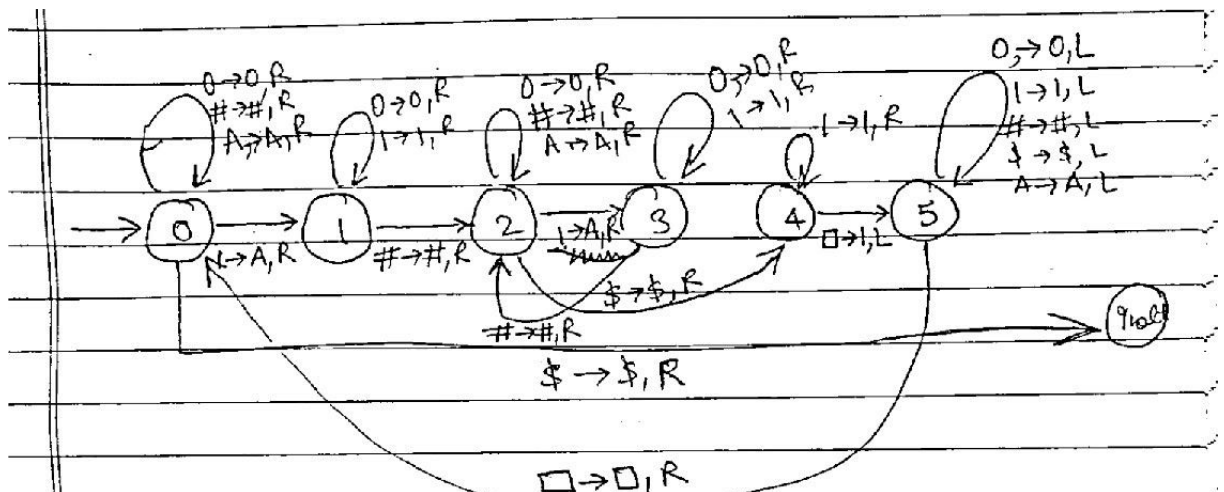 0→0,R
#→#,R
A→A,R
0→0,R
1→1,R
0→0,R
#→#,R
A→A,R
0→0,R
1→1,R
1→1,R
0→0,L
1→1,L
#→#,L
$→$,L
A→A,L
0 1 2 3 4 5
1→A,R
#→#,R
1→A,R
□→1,L
$→$,R
#→#,R
qhalt
$→$,R
□→□,R